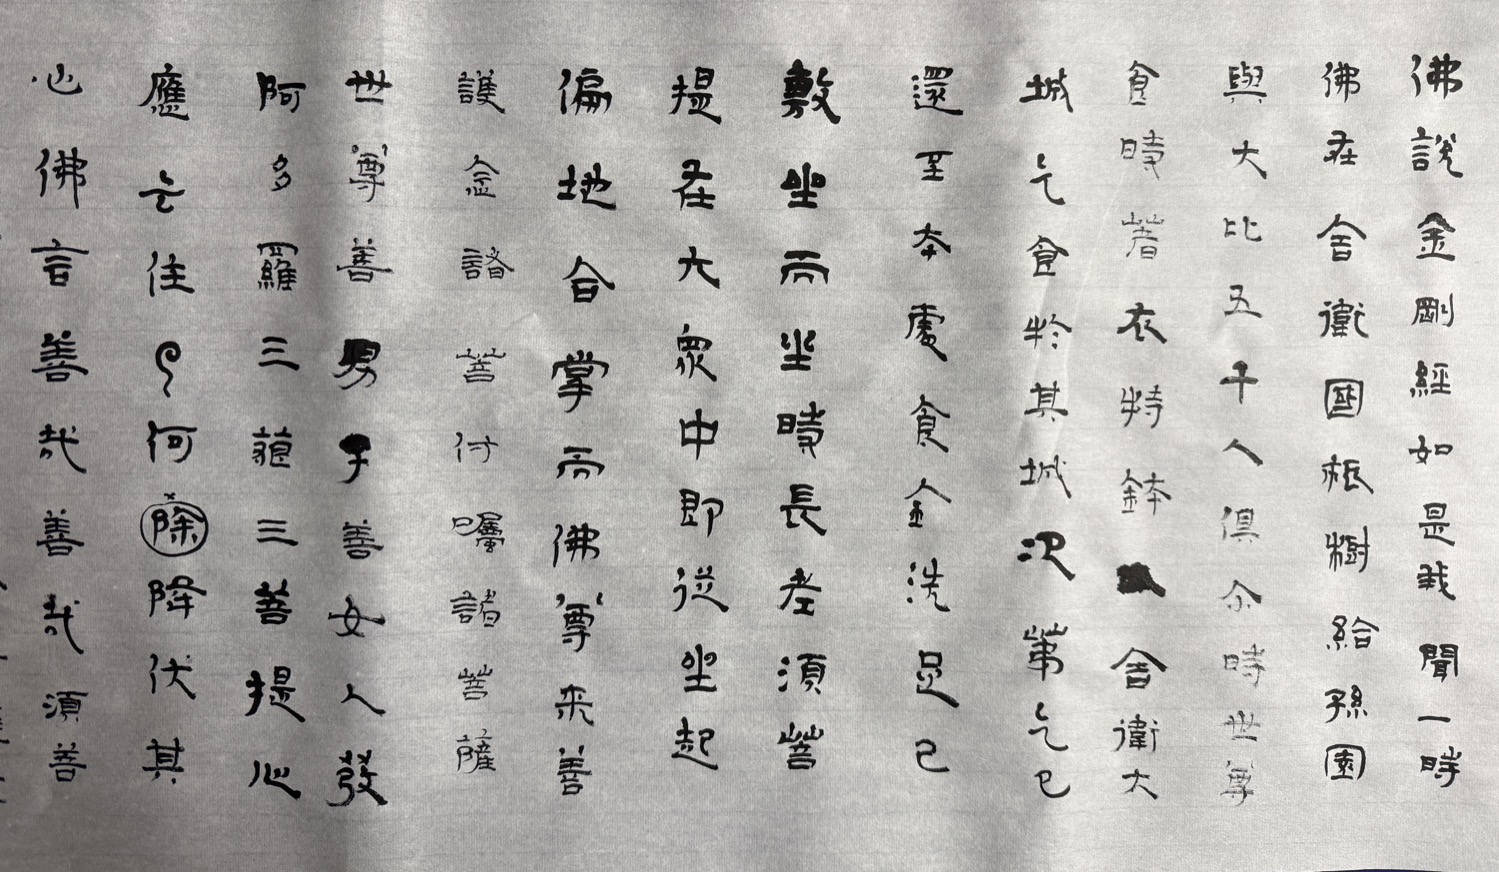 佛說金剛經如是我聞一時
佛在舍衛國祇樹給孫園
與大比五千人俱尒時世尊
食時著衣特鉢舍衛大
城乞食於其城次第乞已
還至本處食金洗足已
敷坐而坐時長老須菩
提在大眾中即從坐起
偏地合掌而佛尊来善
護念諸菩付囑諸菩薩
世尊善男子善女人發
阿多羅三藐三菩提心
應云住何除降伏其
心佛言善哉善哉須善